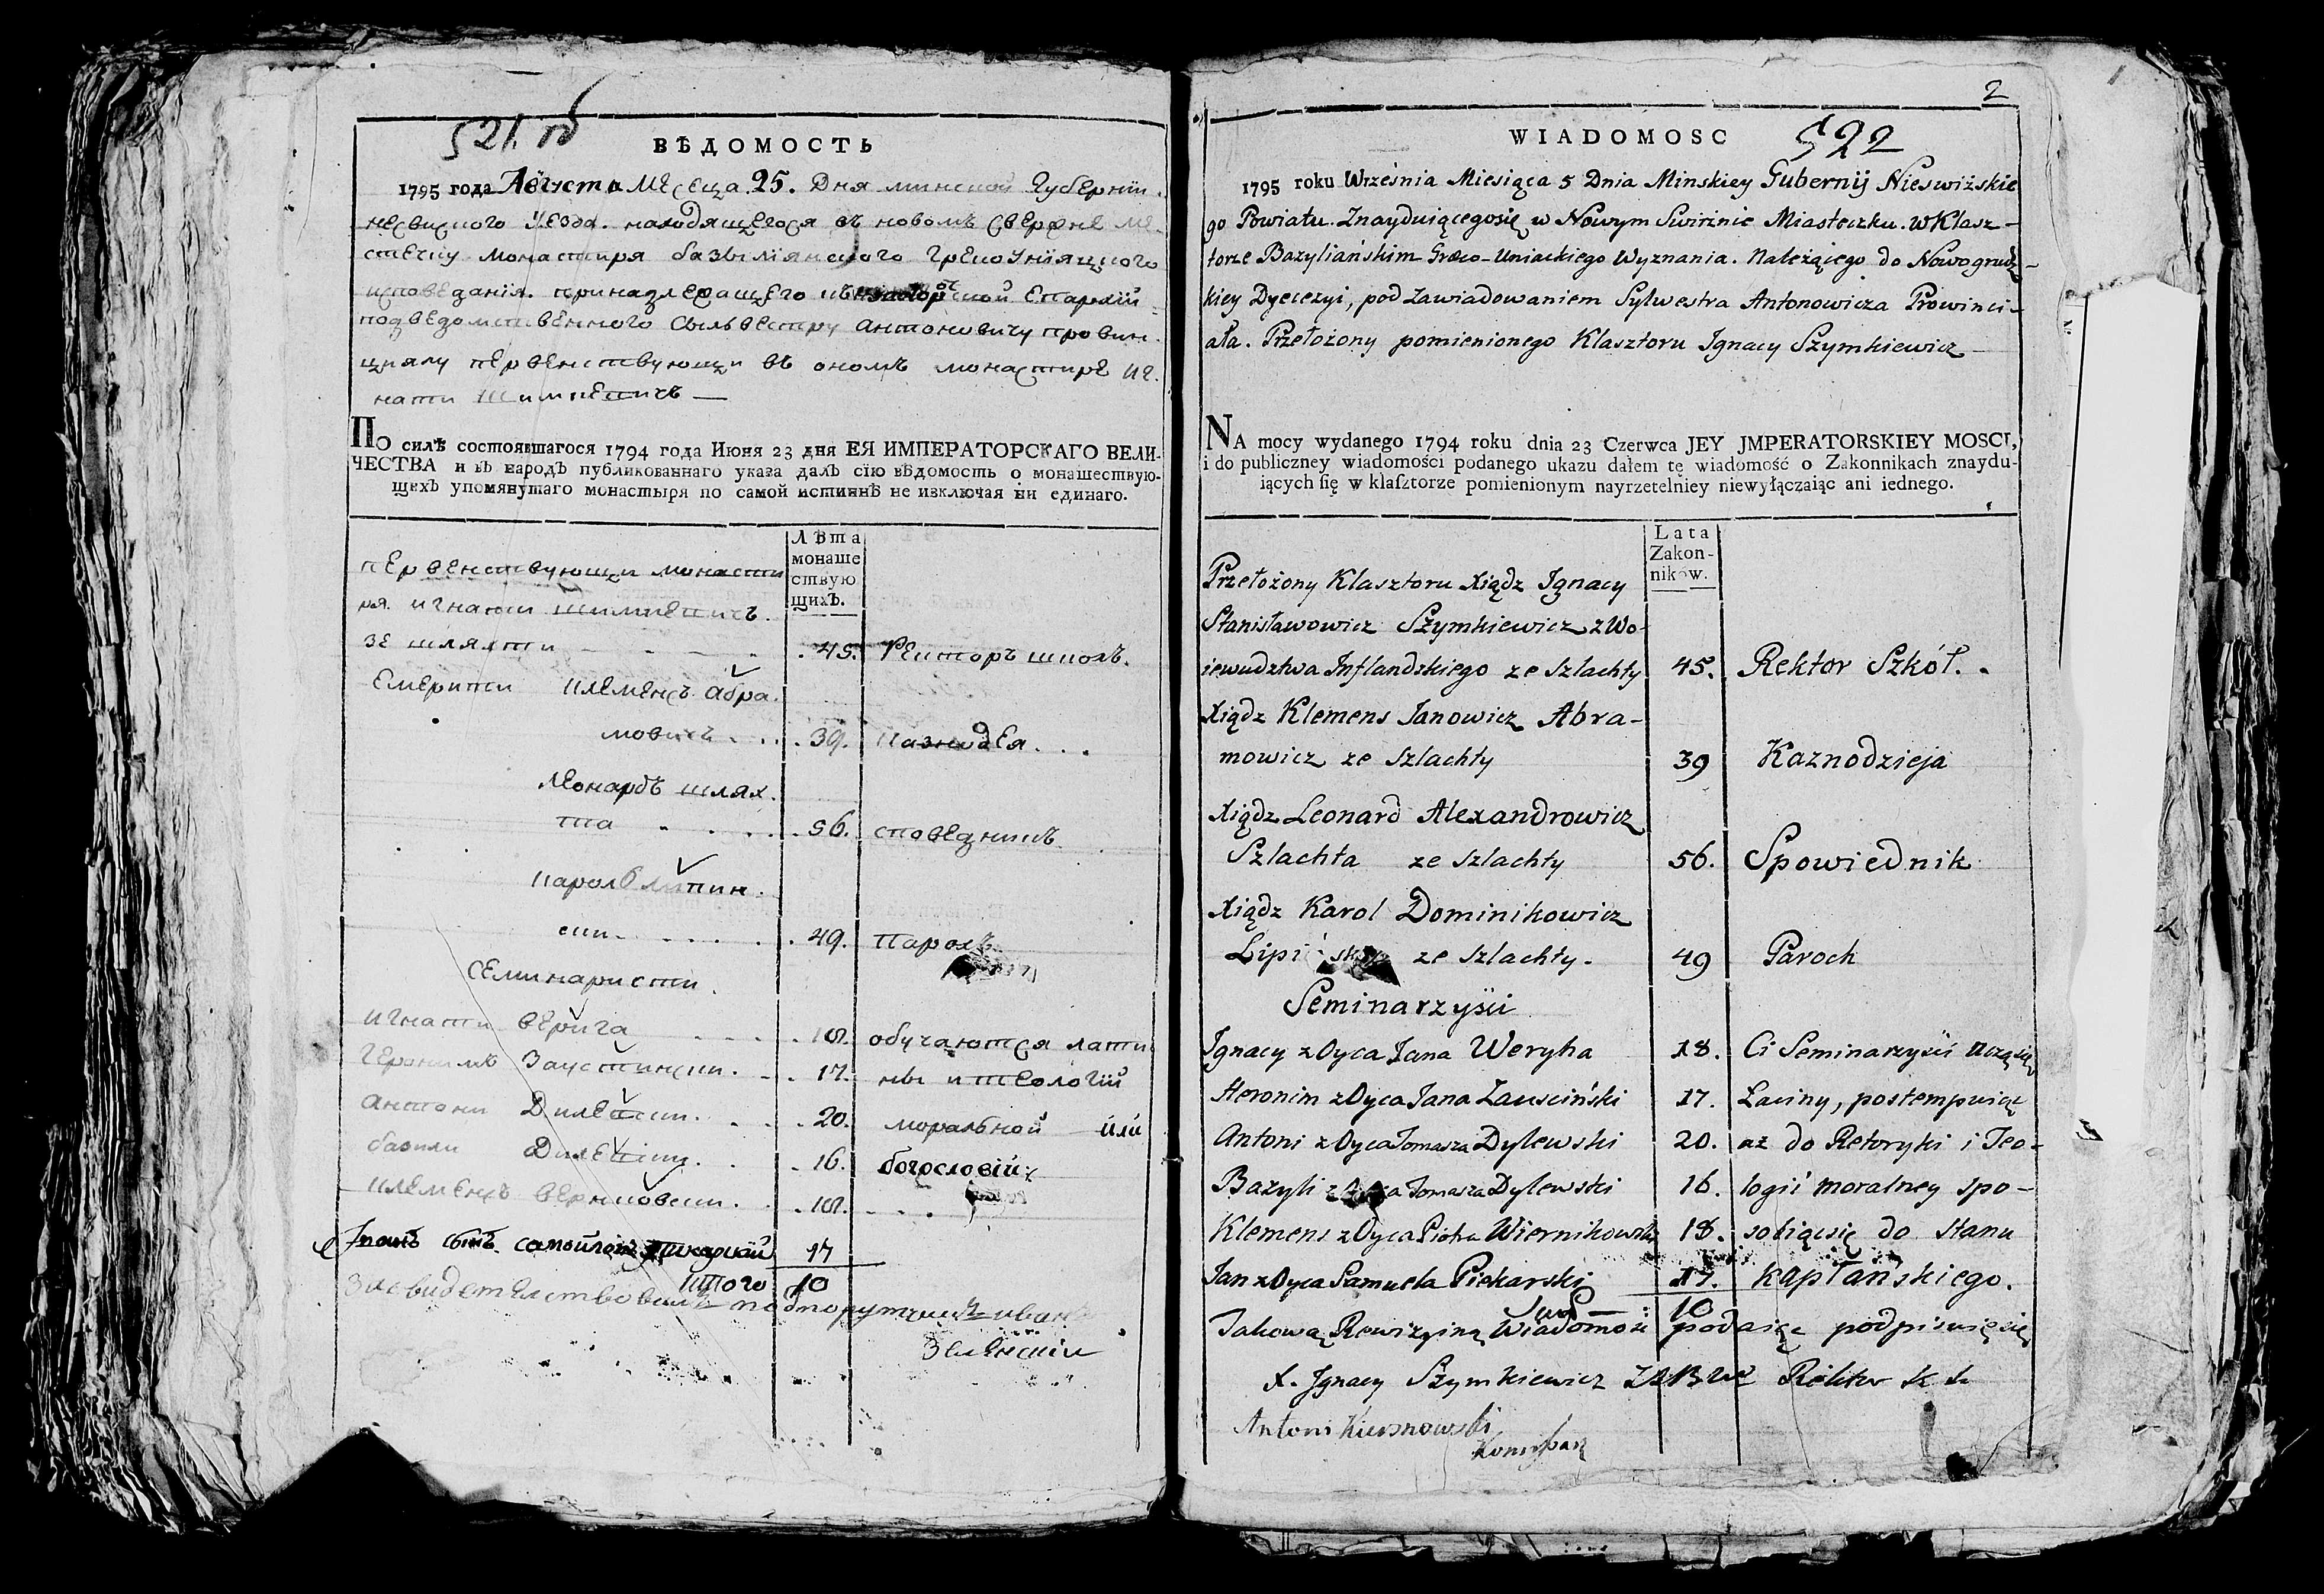 521. об
ВѢДОМОСТЬ
1795 года Августа месеца 25. Дня минской Губернїи.
несвиского уезда. находящегося въ новомъ свержне ме-
стечку монастиря базылїянского Греко Унїяцкого
исповеданїя. принадлежащего къ ской Епархїи
подведомственного Сыльвестру антоновичу провин-
циялу первенствующи въ ономъ монастире иг-
нати Шимкевичъ —
ПО силѣ состоявшагося 1794 года Июня 23 дня ЕЯ ИМПЕРАТОРСКАГО ВЕЛИ-
ЧЕСТВА и въ народъ публикованнаго указа далъ сїю вѣдомость о монашествую-
щихъ упомянутаго монастыря по самой истиннѣ не изключая ни единаго.
Лѣта
монаше
ствую
щихъ.
первенствующи монасти
ря. игнатии шимкевичъ.
зе шляхти 45. Ректоръ школъ.
Емерити клеменсъ абра.
мовичъ . . . 39. Казнодея . . .
Леонардъ шлях.
та . . . . 56. споведникъ
карол липин.
ски . . . . . 49. Парохъ
Семинаристи.
игнати верига . . . . 18. обучаются лати
Геронимъ Заустински. . . 17. ны и теологїй
антони Дилевски. . . . 20. моральной или
базили Дилевски. . . 16. богословїй:
клеменсъ верниковски. . . 18. . . .
Іванъ сынъ самойловъ пикарскїй 17
итого 10
Засвидетельствовалъ подпорутчикъ иванъ
Зеленскїи
2
WIADOMOSC 522
1795 roku Września Miesiąca 5 Dnia Minskiey Gubernij Nieswiżskie
go Powiatu. Znayduiącegosię w Nowym Swirżnie Miasteczku. W Klasz-
torze Bazyliańskim Græco-Uniackiego Wyznania. Należącego do Nowogrudz-
kiey Dyecezyi, pod Zawiadowaniem Sylwestra Antonowicza Prowinci-
ała. Przełożony pomienionego Klasztoru Jgnacy Szymkiewicz —
NA mocy wydanego 1794 roku dnia 23 Czerwca JEY JMPERATORSKIEY MOSCI,
i do publiczney wiadomości podanego ukazu dałem tę wiadomość o Zakonnikach znaydu-
iących się w klasztorze pomienionym nayrzetelniey niewyłączaiąc ani iednego.
Lata
Zakon-
nikow.
Przełożony Klasztoru Xiądz Jgnacy
Stanisławowicz Szymkiewicz z Wo-
iewudztwa Inflandskiego ze Szlachty 45. Rektor Szkół.
Xiądz Klemens Janowicz Abra-
mowicz ze Szlachty 39 Kaznodzieja
Xiądz Leonard Alexandrowicz
Szlachta ze Szlachty 56. Spowiednik
Xiądz Karol Dominikowicz
Lipiński ze Szlachty. 49 Paroch
Seminarzyści
Jgnacy z Oyca Jana Weryha 18. Ci Seminarzyści uczą się
Heronim z Oyca Jana Zausciński 17. Łaciny, postempuiąc
Antoni z Oyca Tomasza Dylewski 20. aż do Retoryki i Teo-
Bazyli z Oyca Tomasza Dylewski 16. logii moralney spo-
Klemens z Oyca Piotra Wiernikowski 18. sobiącsię do Stanu
Jan z Oyca Samuela Piekarski 17. kapłańskiego.
10
Takową Rewizyiną Wiadomość podaiąc podpisuięsię
X. Jgnacy Szymkiewicz Rektor
Antoni Kiersnowski